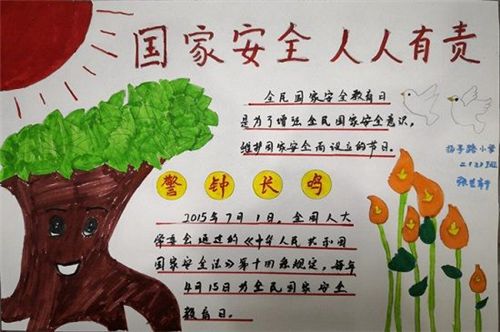 国家安全 人人有责
全民国家安全教育日
是为了增强全民国家安全意识,
维护国家安全而设立的节日。
扬子路小学
张芷
警钟长鸣
2015年7月1日,全国人大
常委会通过的《中华人民共和国
国家安全法》第十四条规定,每年
4月15日为全民国家安全
教育日。